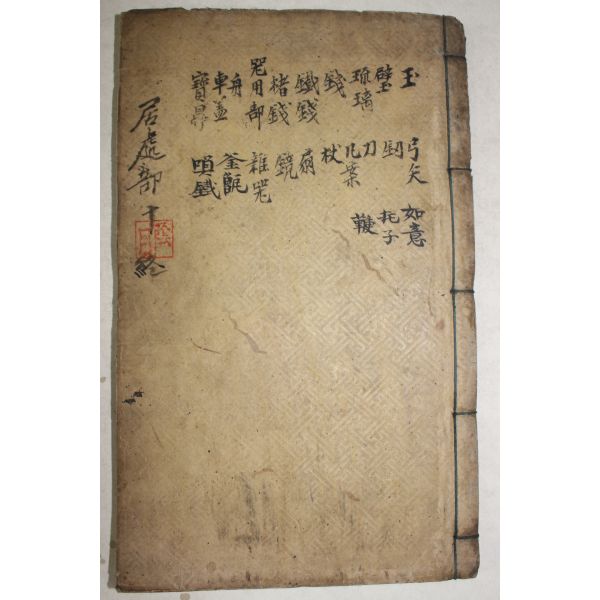 玉 弓矢 如意
璧 劒 拄子
琉璃 刀 鞭
錢 几案
鐵錢 杖
楮錢 扇
器用部 鏡
舟 雜器
車盖 釜甑
寶鼎 鐵
居處部 十 終